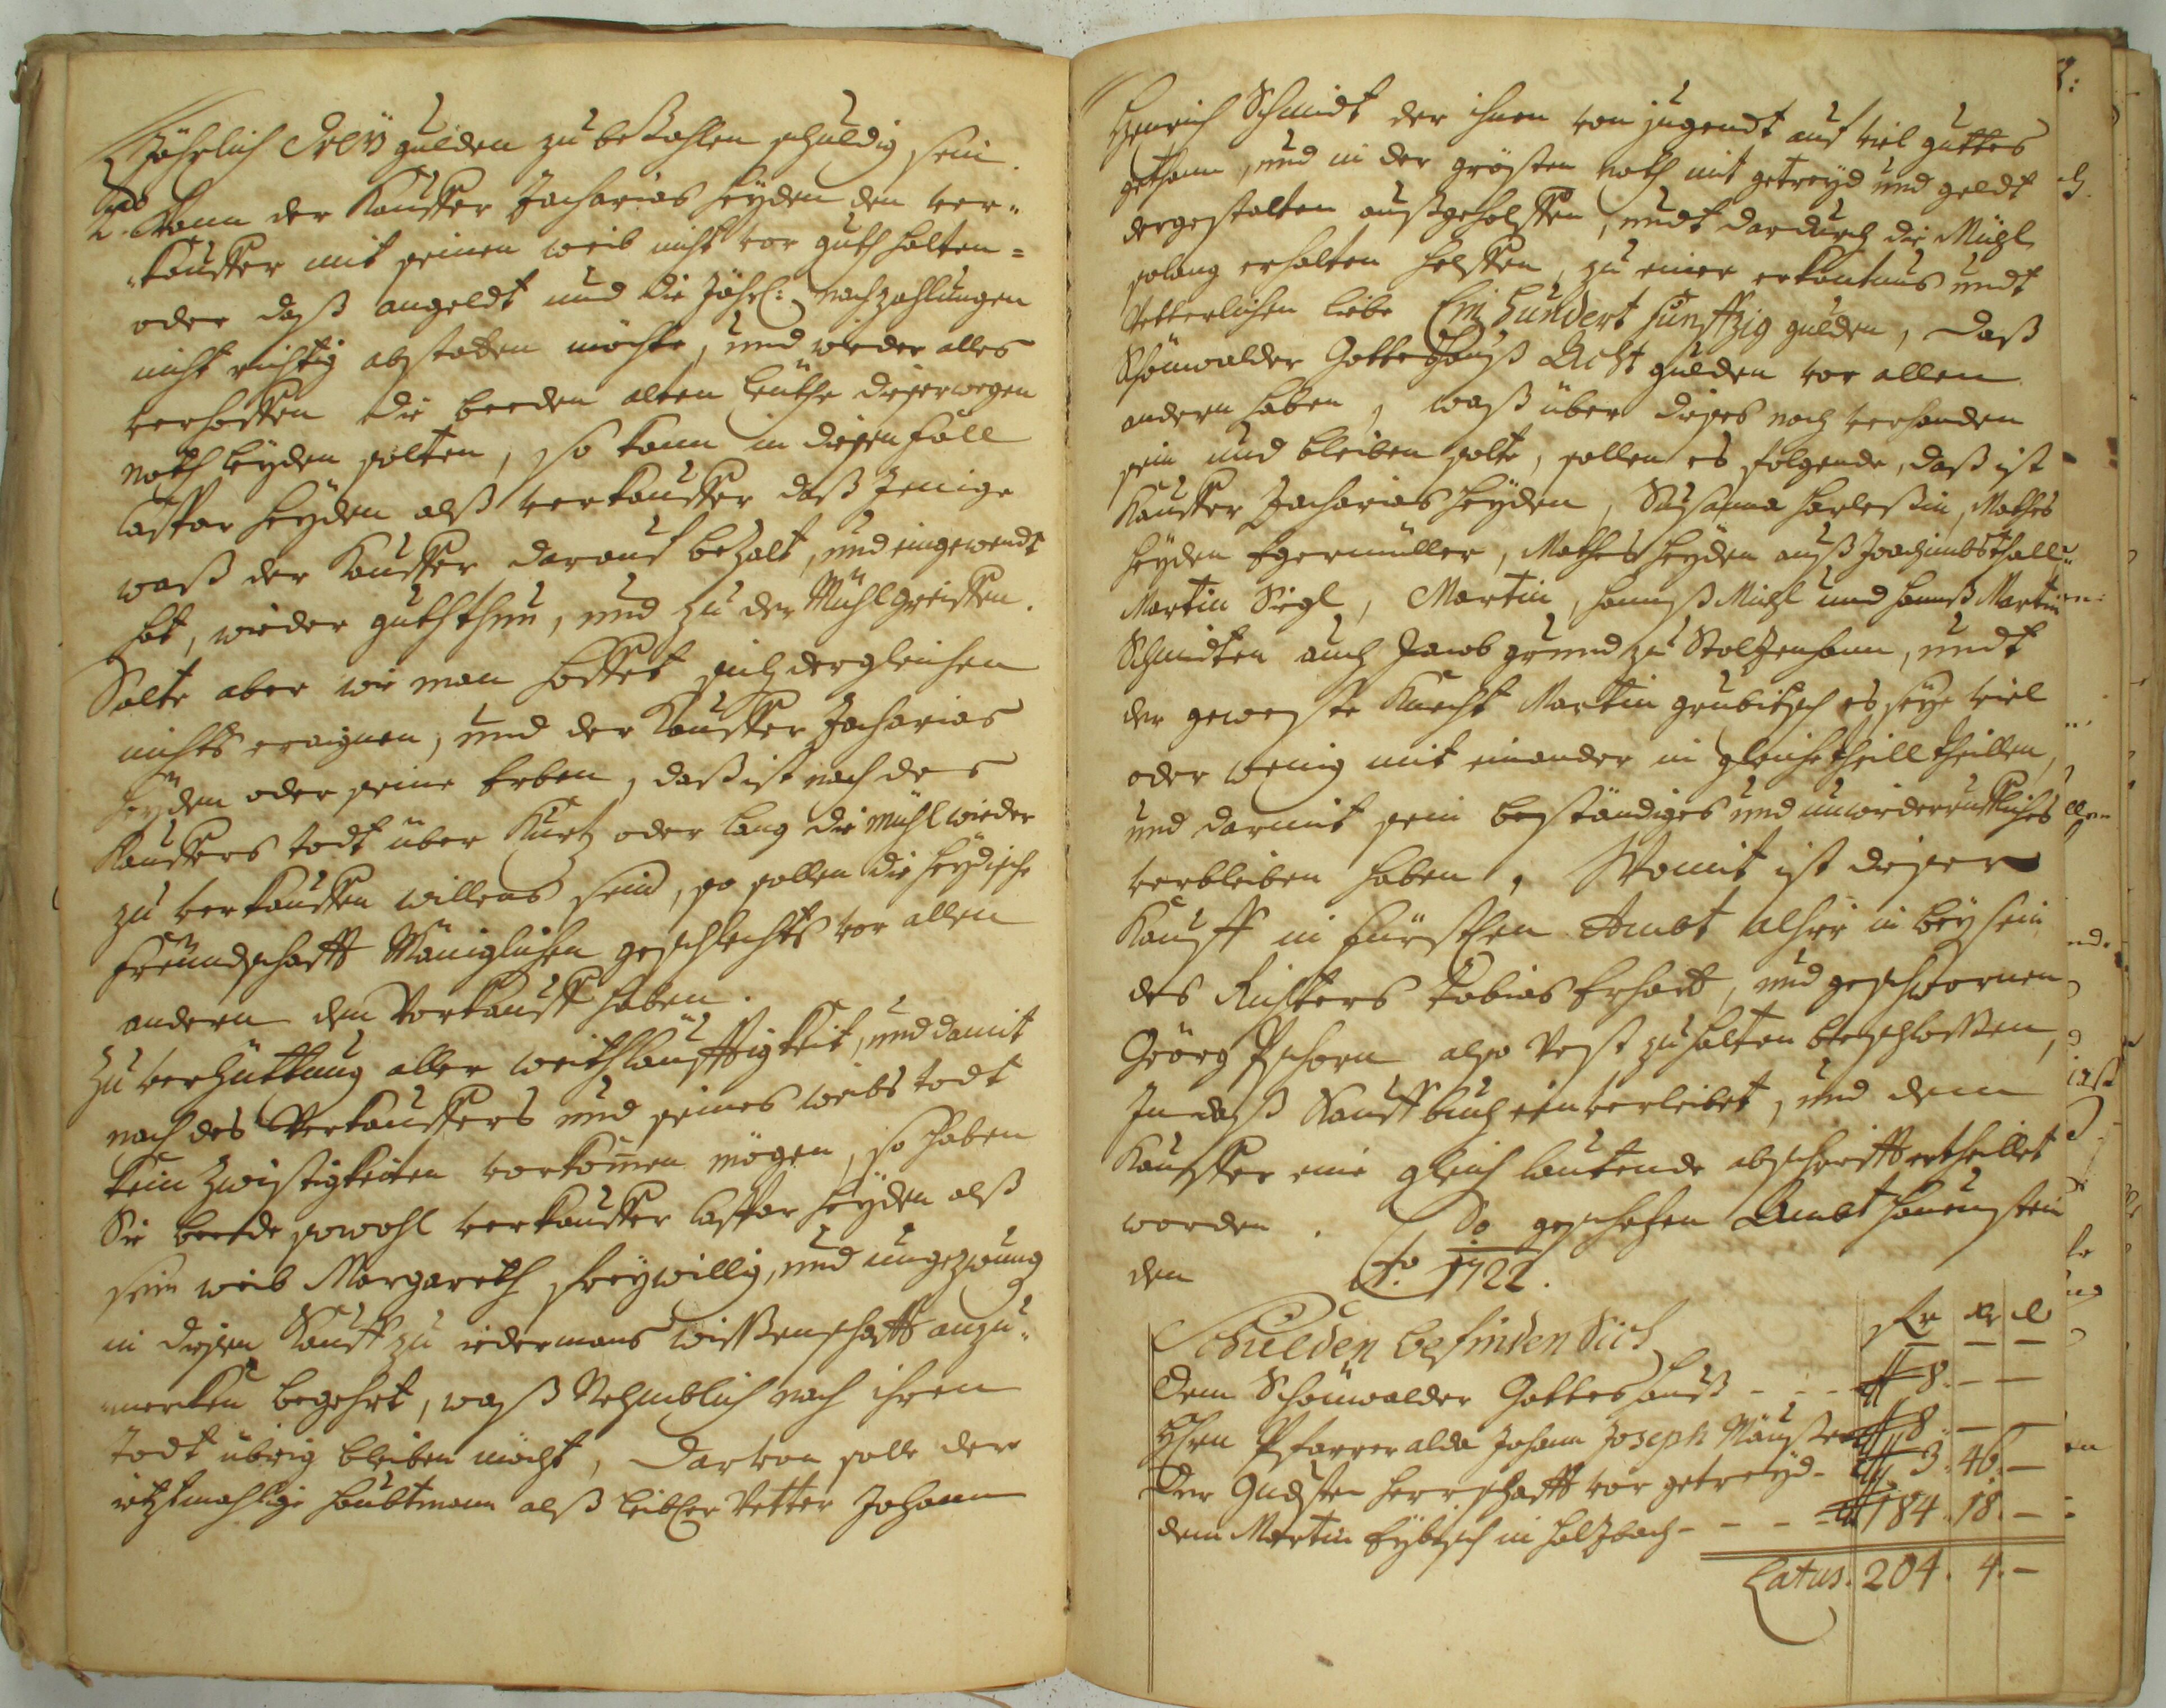 Jährlich Dreÿ gulden zu bezahlen schuldig sein.
2do Wann der Kauffer Zacharias Heÿden den ver-
kauffer mit seinen weib nicht vor guth halten-
oder daß angeldt und die Jährl: nachzahlungen
nicht richtig abstatten möchte, und wieder alles
verhoffen die beeden alten Leuthe dieserwegen
noth leÿden solten, so kann in diesen fall
Caspar Heÿden alß verkauffer daß Jenige
waß der Kauffer darauf bezalt, und eingewendt
hat, wieder guththun, und zu der Mühl greiffen.
Solte aber wie man hoffet sich dergleichen
nichts eraignen, und der Kauffer Zacharias
Heÿden oder seine Erben, daß ist nach des
Kauffers todt über kurtz oder lang die mühl wieder
zu verkauffen willens sein, so sollen die Heÿdische
freundschafft Mäniglichen geschlechts vor allen
andern den Vorkauff haben.
Zu verhüttung aller weithläuffigkeit, und damit
nach des Verkauffers und seines weibs todt
kein Zwistigkeiten vorkommen mögen, so haben
Sie beede sowohl verkauffer Caspar Heÿden alß
sein weib Margareth freÿwillig, und ungezwung
in diesen Kauff zu iedermans wissenschafft anzu-
mercken begehrt, waß Nehmblich nach ihren
todt übrig bleiben möcht, darvon solle der
ietzt mahlige Haubtmann alß leibl: Vetter Johann
Henrich Schmidt der ihnen von jugendt auf viel guttes
gethann, und in der grösten noth mit getreÿd und geldt
dergestalten außgeholffen, undt dardurch die Mühl
solang erhalten helffen, zu einer erkantnus undt
Vetterlichen liebe Ein Hundert funffzig gulden, daß
Schönwalder Gotteshauß Acht gulden vor allen
andern haben, waß über dieses noch verhanden
sein und bleiben solte, sollen es folgende, daß ist
Kauffer Zacharias Heÿden, Susanna Harlessin, Mathes
Heÿden Egermüller, Mathes Heÿden auß Joachimbsthall
Martin Siegl, Martin, Hannß Michl und Hannß Martin
Schmidten auch Jacob grund zu Stoltzenhann, undt
der geweste Knecht Martin grubitsch es seÿe viel
oder wenig mit einander in gleiche theill theillen,
und darmit sein beständiges und unwiederrufliches
verbleiben haben, Womit ist dieser
Kauff in fürstlen Ambt alhier in beÿsein
des Richters Tobias Erhart, und geschwornen
Geörg Pschorn also Vest zu halten beschlossen,
In daß Kauff buch einverleibet, und dem
Kauffer eine gleich lautende abschrifft ertheillet
worden. So geschehen Ambt Hauenstein
den Ao. 1722.
Schulden befinden sich fl kr d
Dem Schönwalder Gotteshauß - - - 8. - -
Hern Pfarrer alda Johann Joseph 8 - -
Der Gndsten Herrschafft vor getreÿd - 3. 46. -
dem Martin in Holzbach - - - - 184. 18. -
Latus. 204. 4. -